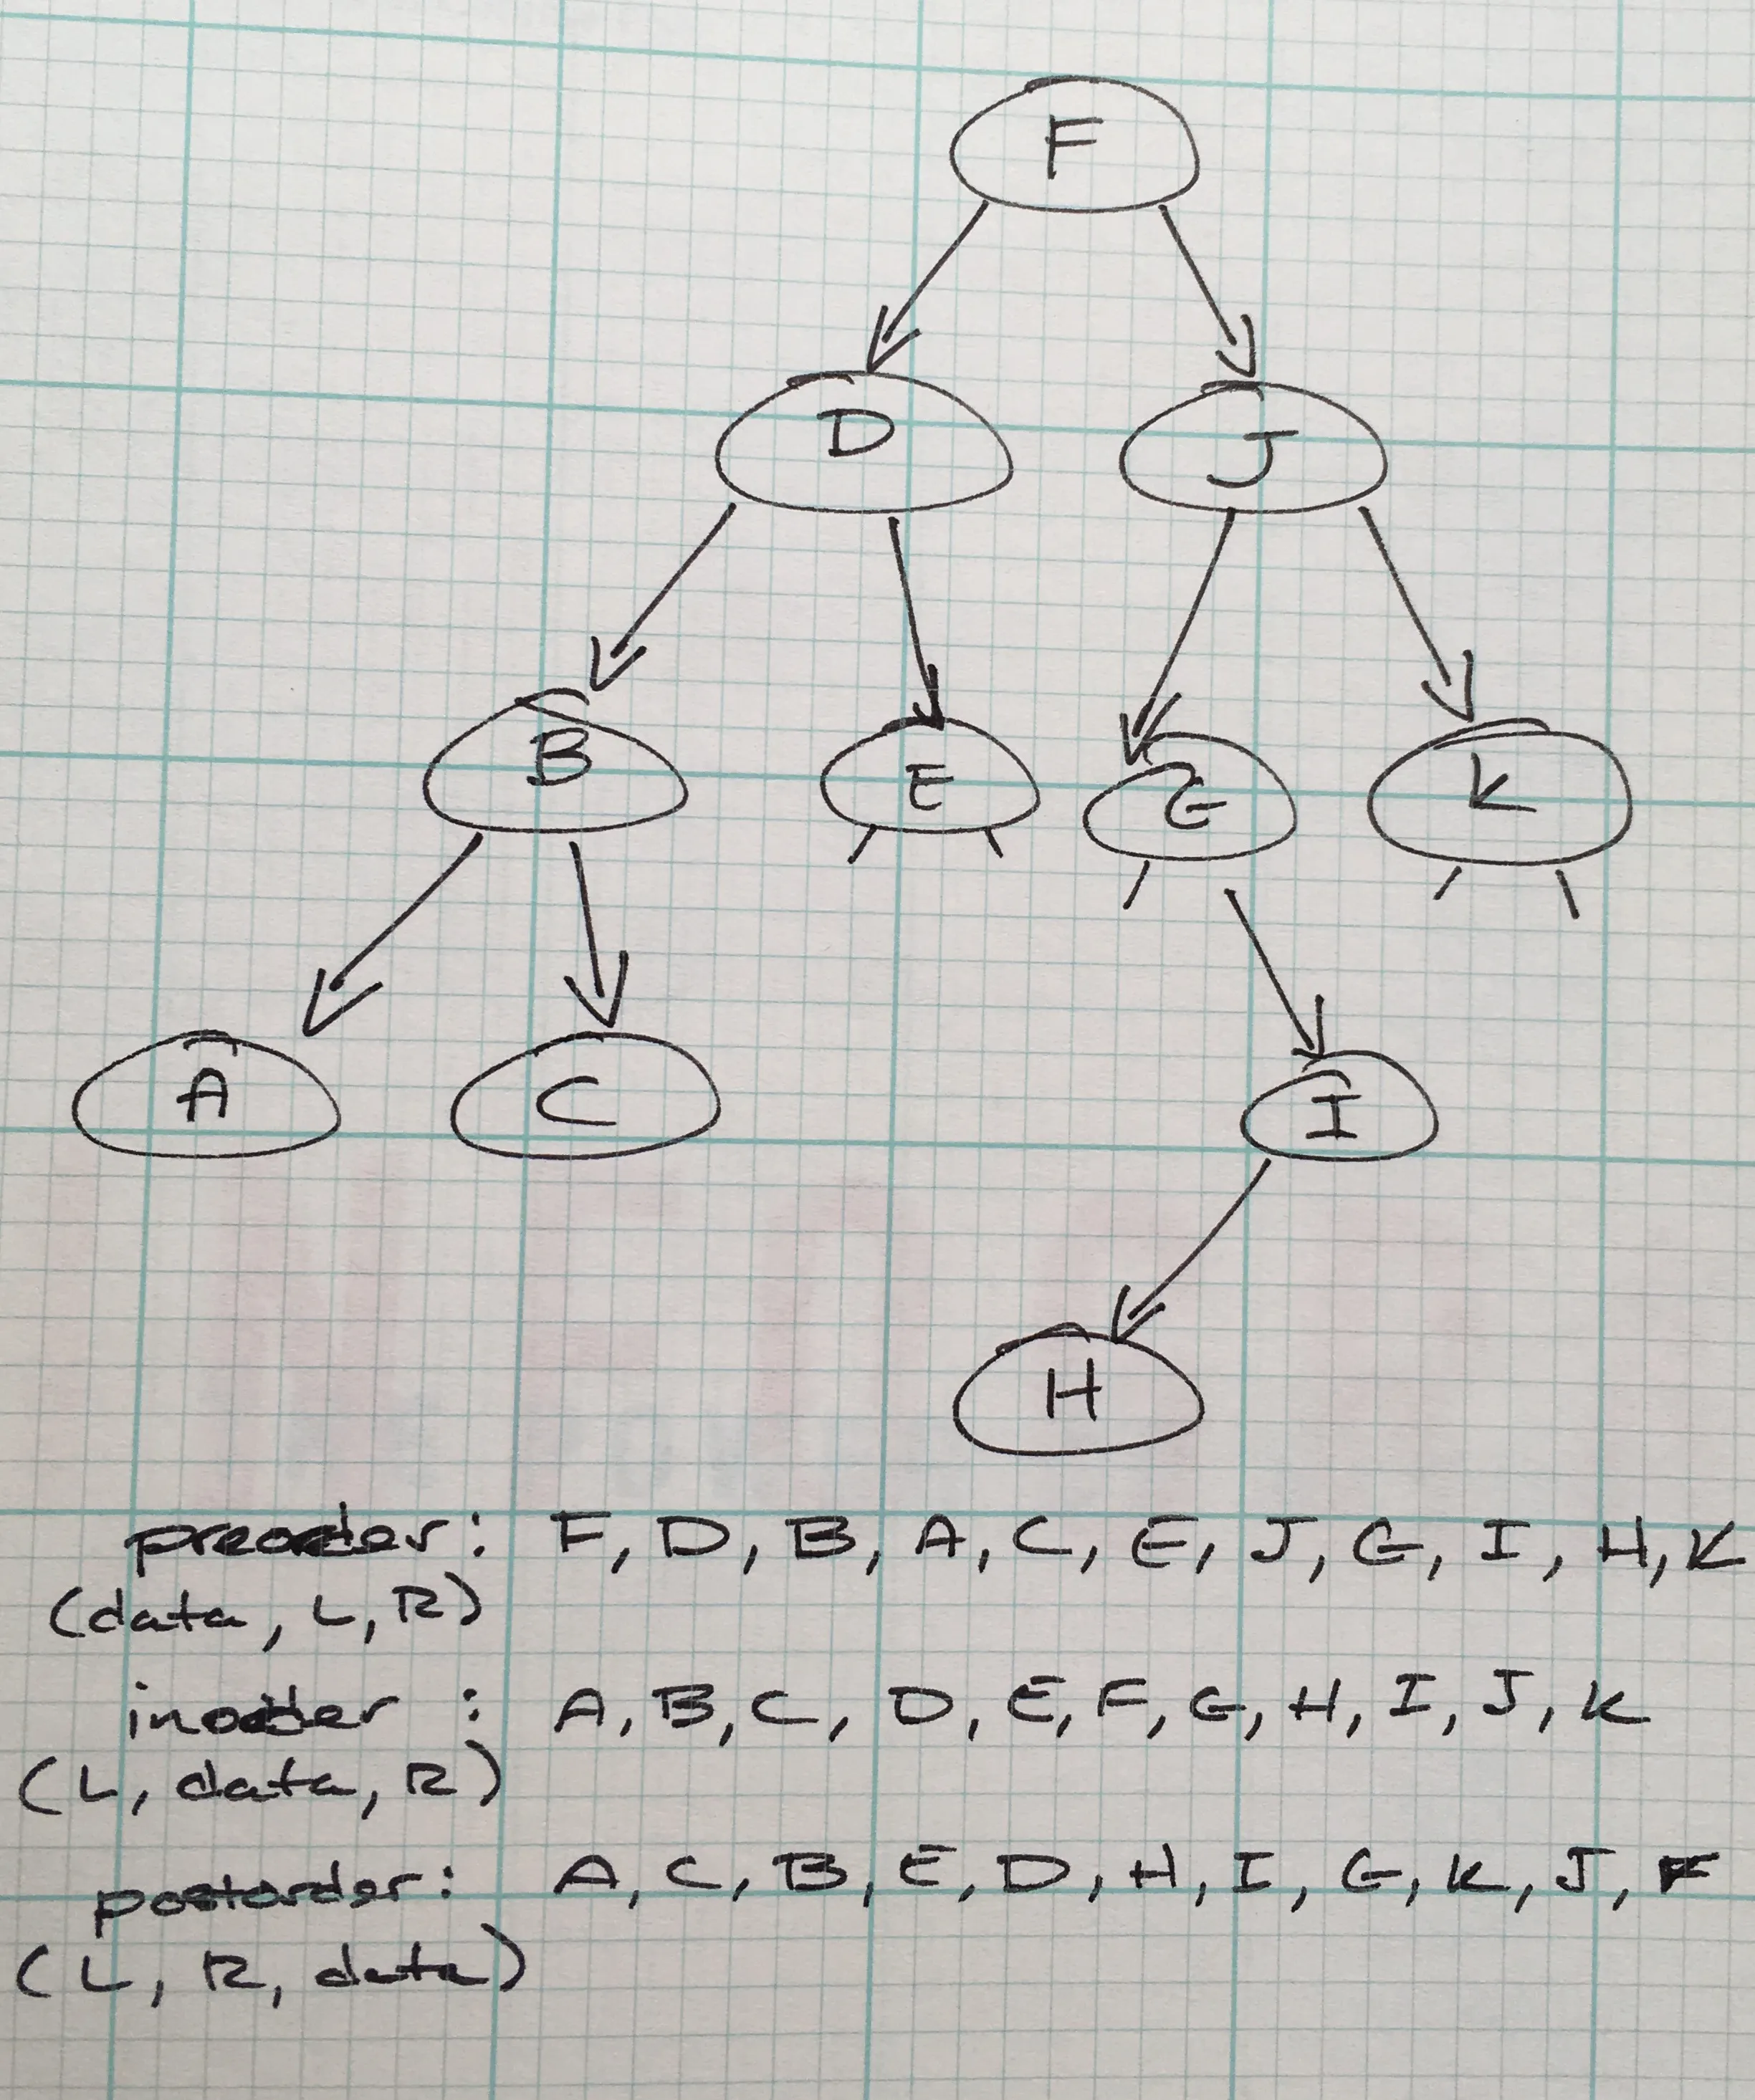 F
D J
B E G K
A C I
H
preorder: F, D, B, A, C, E, J, G, I, H, K
(data, L, R)
inorder : A, B, C, D, E, F, G, H, I, J, K
(L, data, R)
postorder: A, C, B, E, D, H, I, G, K, J, F
(L, R, data)